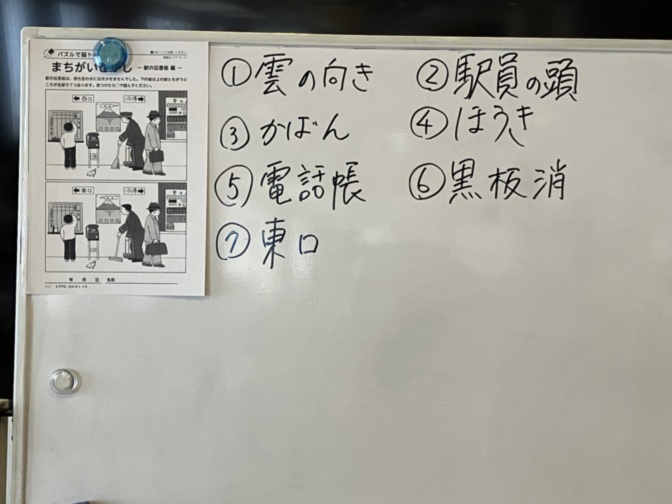 パズルで脳ト
まちがいさがし －駅の伝言板 編－
①雲の向き ②駅員の頭
③かばん ④ほうき
⑤電話帳 ⑥黒板消
⑦東口
年 月 日 名前